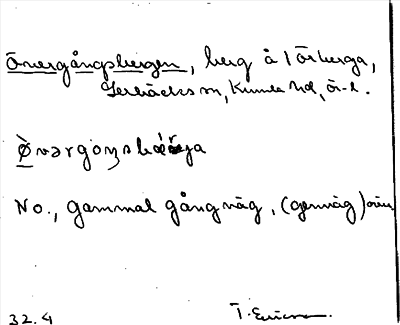 Övergångsbergen, berg å Törberga,
Gerbäcks sn, Kumla hd, Ö-l.
Øvərgoŋsbærja
No., Gammal gångväg, (genväg) över
32.4 T. Ericsson.